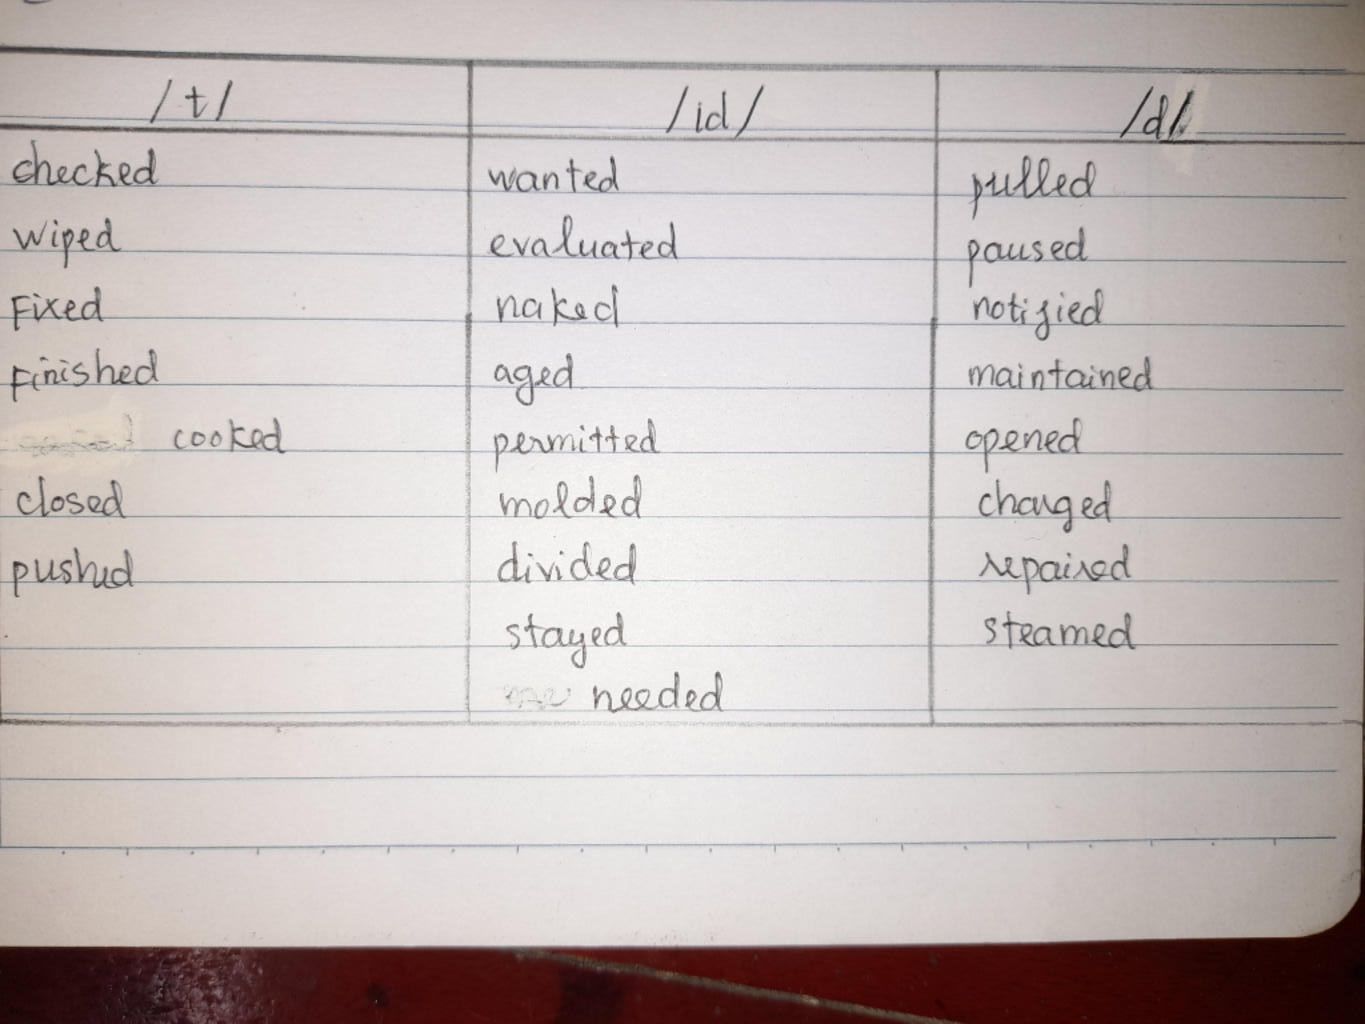 /t/ /id/ /d/
checked wanted pulled
wiped evaluated paused
Fixed naked notified
Finished aged maintained
cooked permitted opened
closed molded changed
pushed divided repaired
stayed steamed
needed